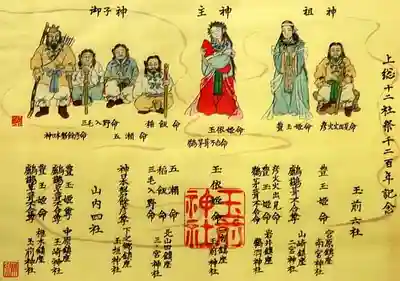 祖神
主神
御子神
上総十二社祭千二百年記念
彦火火出見命
豊玉姫命
玉依姫命
稲飯命
五瀬命
三毛入野命
玉前六社
豊玉姫命
宮原鎮座
南宮神社
山崎鎮座
二宮神社
彦火々出見命
豊玉姫命
岩井鎮座
鶴羽神社
玉依姫命
玉前神社
五瀬命
稲飯命
三毛入野命
北山田鎮座
三之宮神社
下之郷鎮座
玉垣神社
山内四社
豊玉姫尊
中原鎮座
玉崎神社
豊玉姫尊
椎木鎮座
玉前神社
玉前
神社